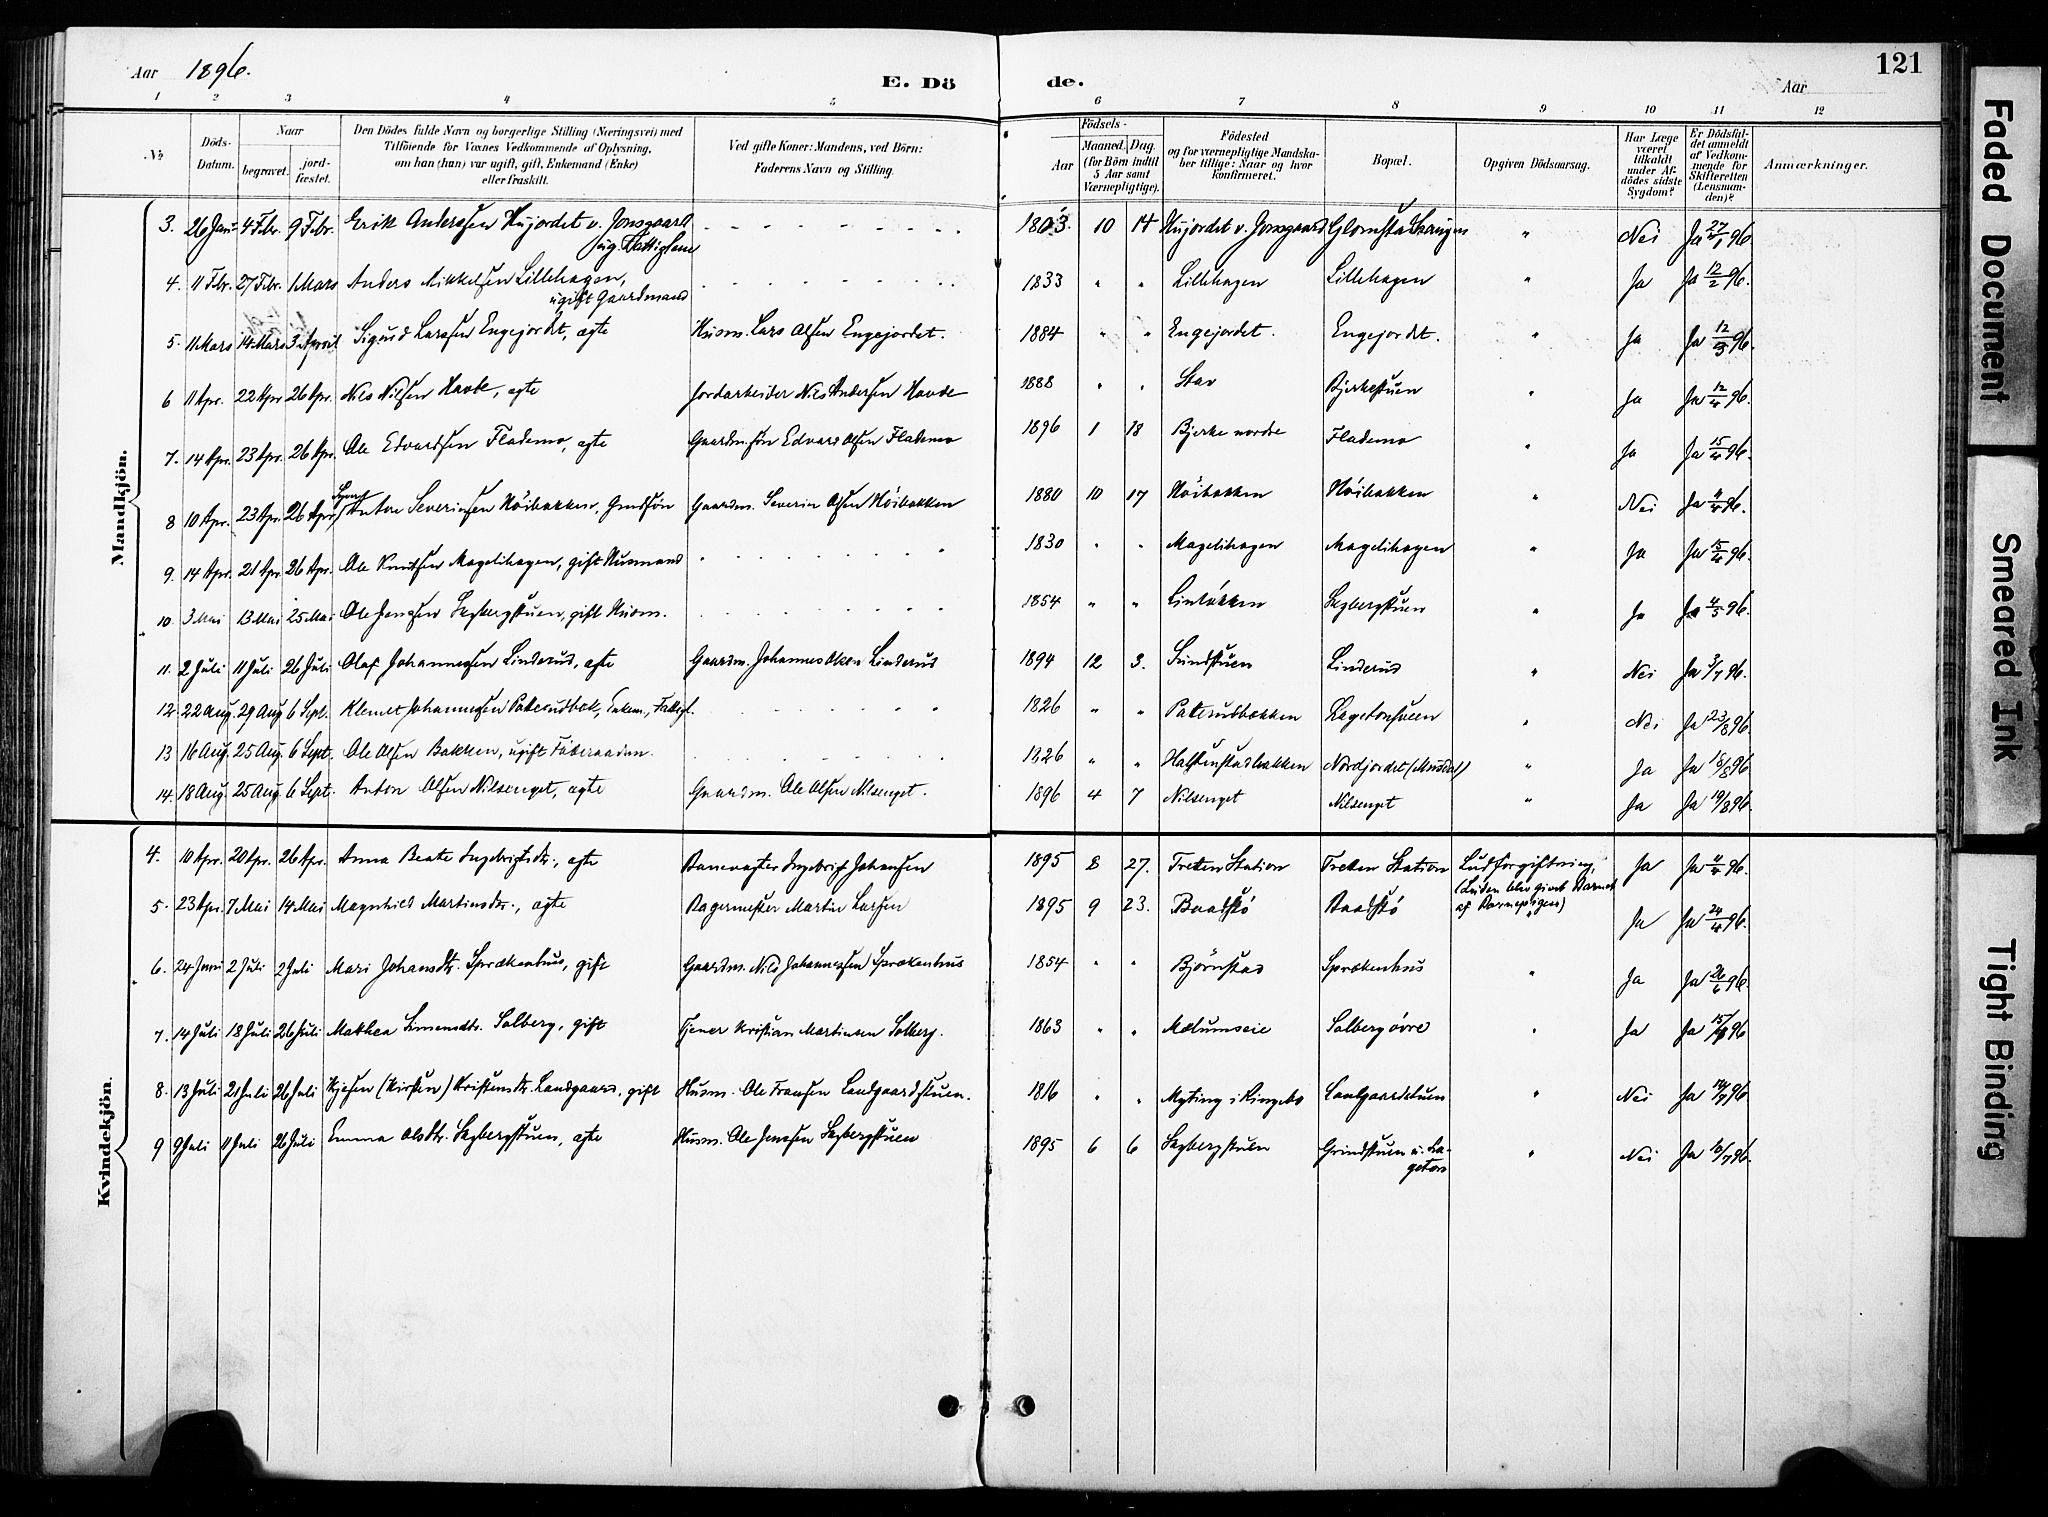 Aar 1896. E. Dö de. Aar 121
1 2 3 4 5 6 7 8 9 10 11 12
No. Döds-Datum. Naar begravet. jord-fæstet. Den Dödes fulde Navn og borgerlige Stilling (Næringsvei) med Tilföiende for Voxnes Vedkommende af Oplysning, om han (hun) var ugift, gift, Enkemand (Enke) eller fraskilt. Ved gifte Koner: Mandens, ved Börn: Faderens Navn og Stilling. Födsels- Aar Maaned. Dag. (for Börn indtil 5 Aar samt Værnepligtige). Födested og for værnepligtige Mandskaber tillige: Naar og hvor konfirmeret. Bopæl. Opgiven Dödsaarsag. Har Læge været tilkaldt under Afdödes sidste Sygdom? Er Dödsfaldet anmeldt af Vedkommende for Skifteretten (Lensmanden)? Anmærkninger.
Mandkjön.
3. 26 Jan. 4 Febr. 9 Febr. Erik Anderssen Nyjordet v. Jonsgaard 1803 10 14 Nyjordet v. Jonsgaard " Nei Ja 27/1 96.
4. 11 Febr. 27 Febr. 1 Mars Anders Mikkelsen Lillehagen, ugift Gaardmand 1833 " " Lillehagen Lillehagen " Ja Ja 12/2 96.
5. 11 Mars 14 Mars 3 April Sigurd Larssen Engejordet, ægte Husm. Lars Olsen Engejordet. 1884 " " Engejordet. Engejordet. " Ja Ja 12/3 96.
6 11 Apr. 22 Apr 26 Apr. Nils Nilsen Havde, ægte Jordarbeider Nils Andersen Havde 1888 " " Stav Bjerkestuen " Ja Ja 12/4 96.
7. 14 Apr. 23 Apr. 26 Apr. Ole Edvardsen Flademo, ægte Gaardm. søn Edvard Olsen Flademo 1896 1 18 Bjerke nordre Flademo " Ja Ja 15/4 96.
8 10 Apr. 23 Apr. 26 Apr. Anton Severinsen Höibakken, Grdsön Gaardm. Severin Olsen Höibakken 1880 10 17 Höibakken Höibakken " Nei Ja 11/4 96.
9. 14 Apr. 21 Apr. 26 Apr. Ole Knutsen Magelihagen, gift Husmand " 1830 " " Magelihagen Magelihagen " Ja Ja 15/4 96.
10. 3 Mai 13 Mai 25 Mai Ole Jenssen Sagbergstuen, gift Husm. " 1854 " " Linløkken Sagbergstuen " Ja Ja 4/5 96.
11. 2 Juli 11 Juli 26 Juli Olaf Johannessen Linderud, ægte Gaardm. Johannes Olsen Linderud 1894 12 3. Sundstuen Linderud " Nei Ja 3/7 96.
12. 22 Aug. 29 Aug 6 Sept. Klemet Johannessen Paterudbæk, Enkem., Fattigl. " 1826 " " Paterudbækken " Nei Ja 23/8 96
13 16 Aug. 25 Aug. 6 Sept. Ole Olsen Bakken, ugift Föderaadm. 1826 " " Halstenstadbakken Nordjordet (Musdal) " Ja Ja 18/8 96
14. 18 Aug. 25 Aug 6 Sept. Anton Olsen Nilsenget, ægte Gaardm. Ole Olsen Nilsenget. 1896 4 7 Nilsenget Nilsenget " Ja Ja 19/8 96.
Kvindekjön.
4. 10 Apr. 20 Apr. 26 Apr. Anna Beate Ingebrigtsdtr., ægte Banevogter Ingebrigt Johansen 1895 8 27. Tretten Station Tretten Station Ludforgiftning, (Luden blev givet Barnet af Barnepigen) Ja Ja 11/4 96.
5. 23 Apr. 7 Mai 14 Mai Magnhild Martinsdtr., ægte Bagermester Martin Larsen 1895 9 23. Baadstö Baadstö " Ja Ja 24/4 96.
6. 24 Juni 2 Juli 2 Juli Mari Johansdtr. Sprækenhus, gift Gaardm. Nils Johannessen Sprækenhus 1854 " " Björnstad Sprækenhus " Ja Ja 26/6 96.
7. 14 Juli 18 Juli 26 Juli Mathea Simensdtr. Solberg, gift Tjener Kristian Martinsen Solberg. 1863 " " Mælumseie Solberg övre " Ja Ja 15/7 96
8. 13 Juli 21 Juli 26 Juli Kjesten (Kirsten) Kristensdtr. Landgaard, gift Husm. Ole Fransen Landgaardstuen. 1816 " " Myting i Ringebo Landgaardstuen " Nei Ja 14/7 96
9 9 Juli 11 Juli 26 Juli Emma Olsdtr. Sagbergstuen, ægte Husm. Ole Jenssen Sagbergstuen 1895 6 6 Sagbergstuen Grindstuen u. Lageton " Nei Ja 10/7 96.
Faded Document
Smeared Ink
Tight Binding